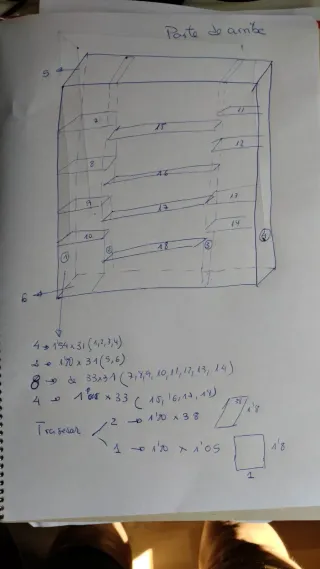 Parte de arriba
5
11
7
15
12
8
16
9
17
13
10
14
18
1
2
3
4
6
4 → 1'54 x 31 (1,2,3,4)
2 → 1'90 x 31 (5,6)
8 → de 33x31 (7,8,9,10,11,12,13,14)
4 → x 33 (15,16,17,18)
Traseras
2 → 1'90 x 38
1'8
1 → 1'90 x 1'05
1'8
1